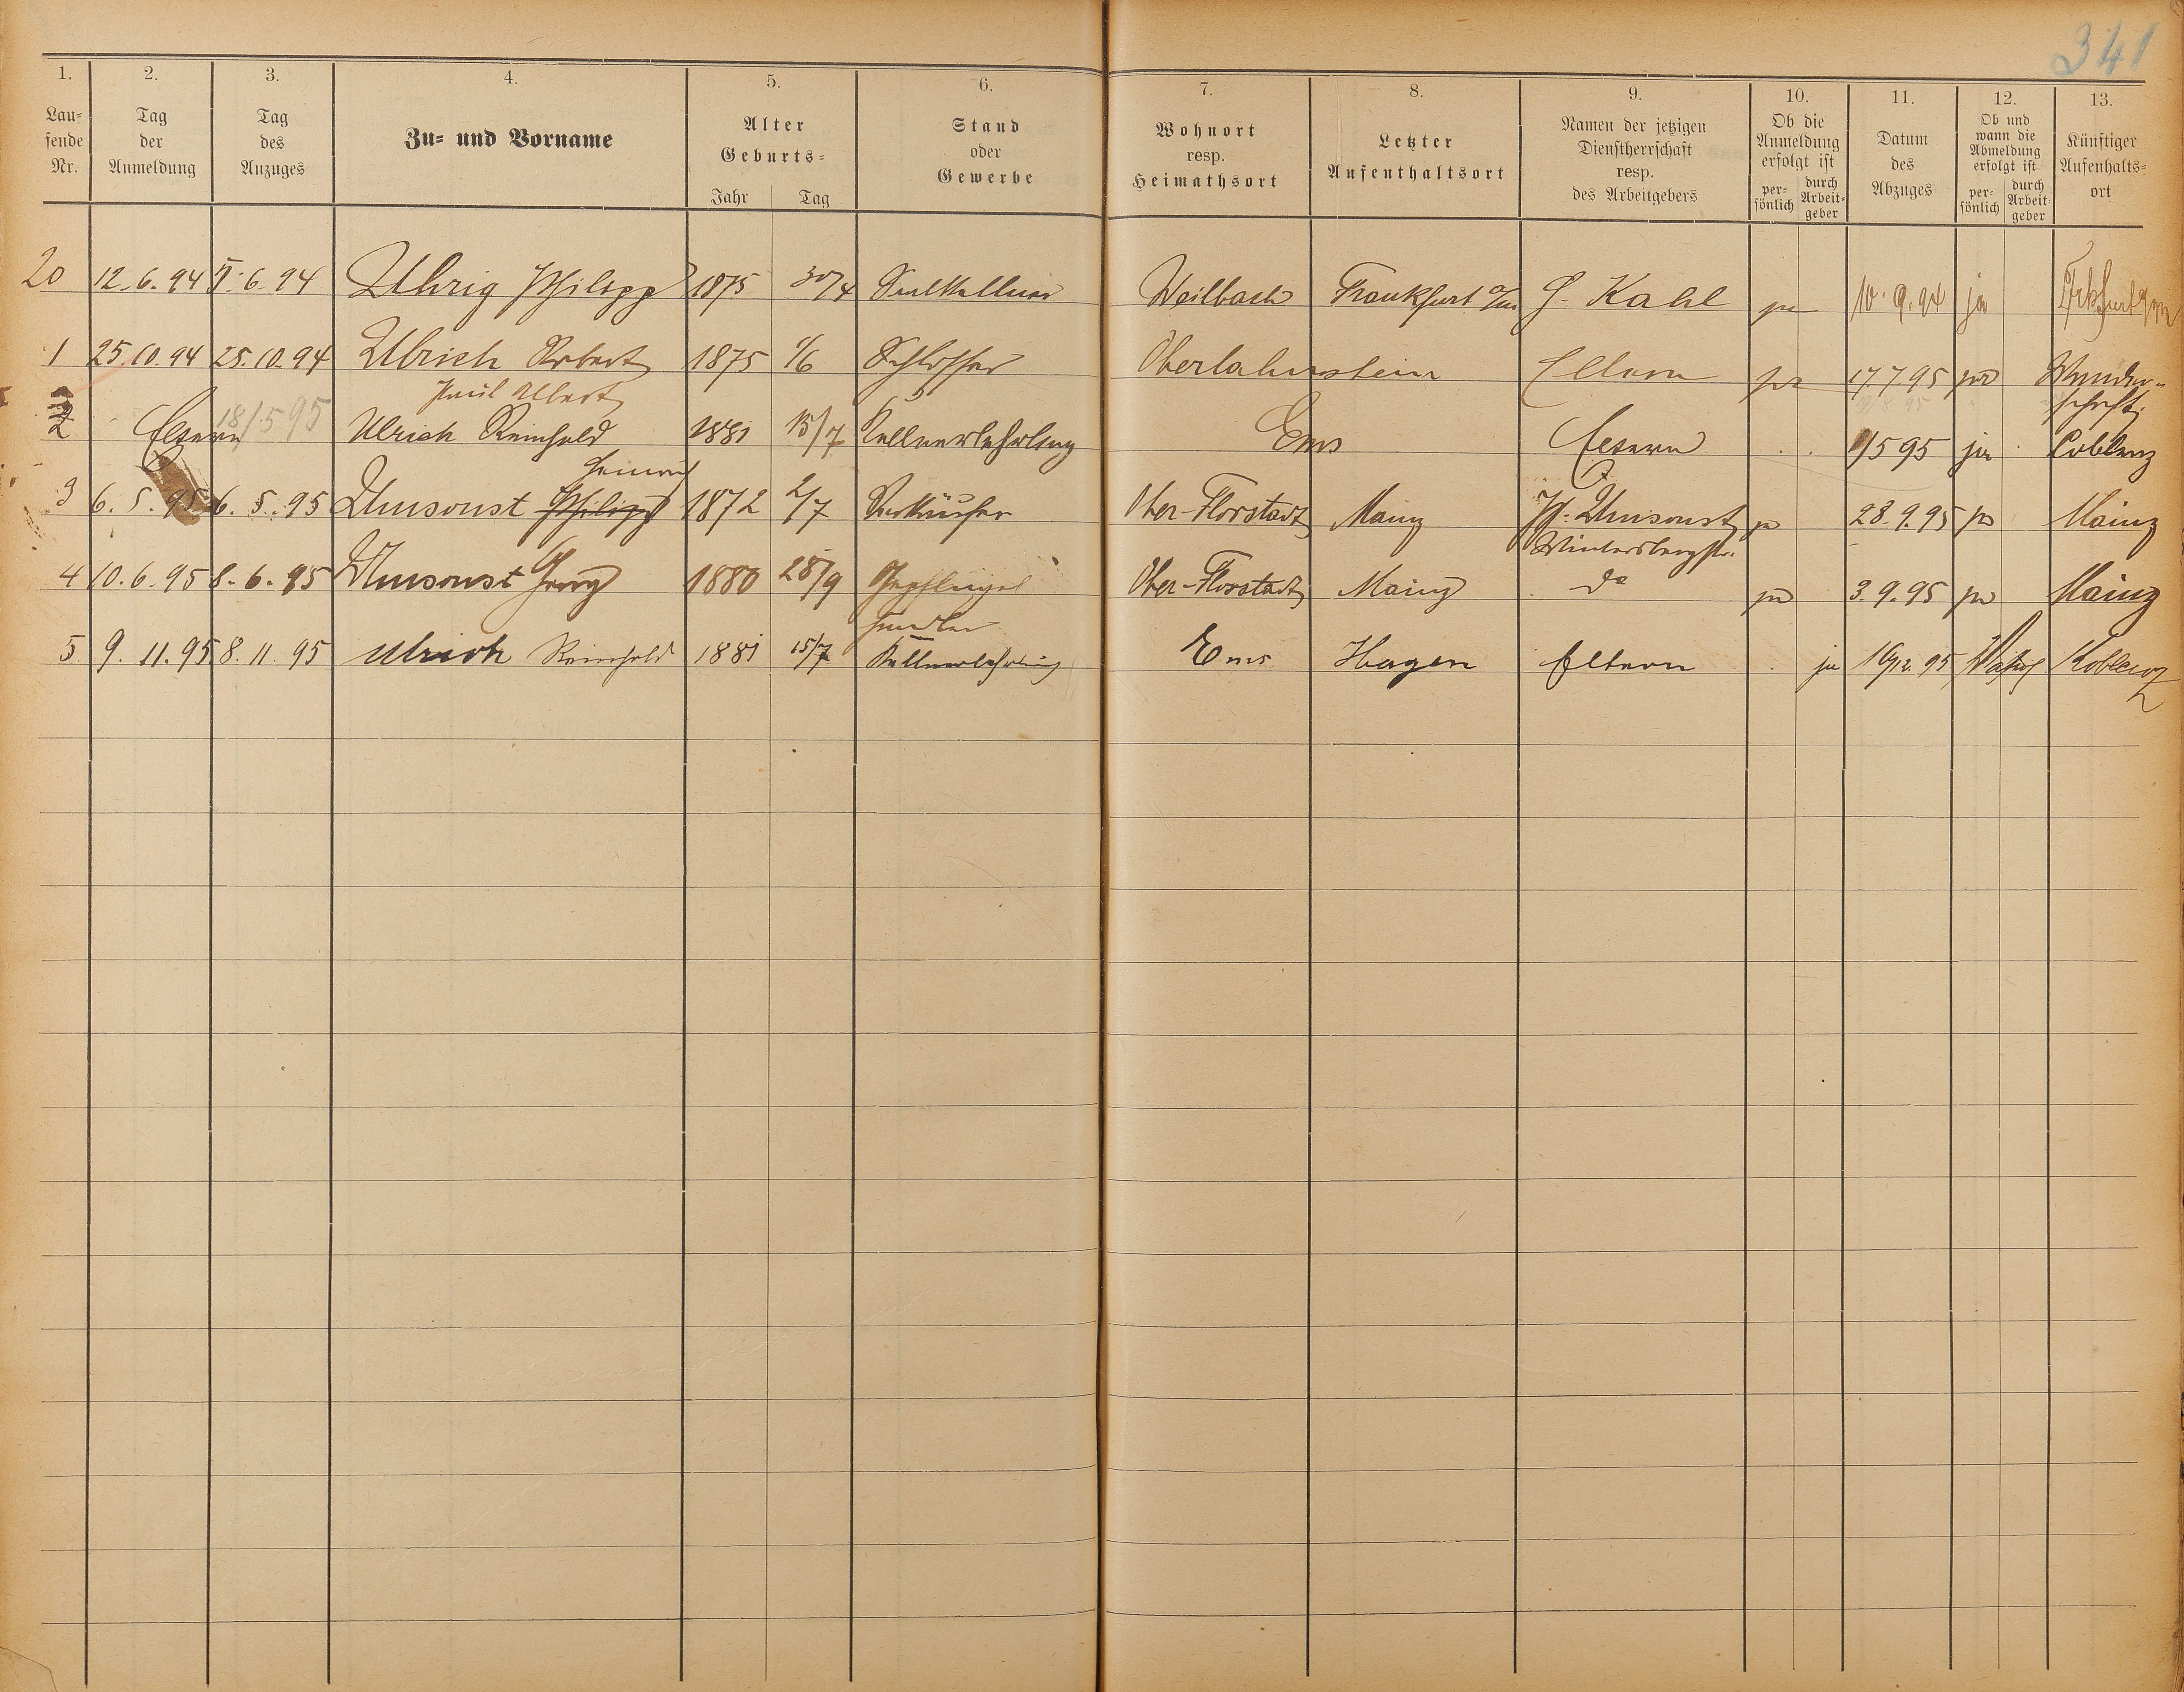 341
1. 2. 3. 4. 5. 6. 7. 8. 9. 10. 11. 12. 13.
Lau=
fende
Nr.
Tag
der
Anmeldung
Tag
des
Anzuges
Zu= und Vorname
Alter
Geburts=
Jahr Tag
Stand
oder
Gewerbe
Wohnort
resp.
Heimathsort
Letzter
Aufenthaltsort
Namen der jetzigen
Dienstherrschaft
resp.
des Arbeitgebers
Ob die
Anmeldung
erfolgt ist
per=
sönlich
durch
Arbeit=
geber
Datum
des
Abzuges
Ob und
wann die
Abmeldung
erfolgt ist
per=
sönlich
durch
Arbeit=
geber
Künftiger
Aufenthalts=
ort
20 12.6.94 6.94 Uhrig Philipp 1875 30/4 Saalkellner Weilbach Frankfurt a/m G. Kahl ja 10.9.94 ja Frkfurt a/m
1 25.10.94 25.10.94 Ulrich Robert 1875 1/6 Schlosser Oberlahnstein Eltern ja 17.7.95 ja Wander-
Paul Albert schaft
2 Eltern 18/5 95 Ulrich Reinhold 1881 15/7 Kellnerlehrling Ems Eltern 1/5 95 ja Coblenz
Heinrich
3 6.5.95 6.5.95 Umsonst Philipp 1872 2/7 Verkäufer Ober-Florstadt Mainz Ph. Umsonst ja 28.9.95 ja Mainz
Wintersbergstr.
4 10.6.95 8.6.95 Umsonst Georg 1880 28/9 Geflügel Ober-Florstadt Mainz do ja 3.9.95 ja Mainz
händler
5 9.11.95 8.11.95 Ulrich Reinhold 1881 15/7 Kellnerlehrling Ems Hagen Eltern ja 12.95 Koblenz